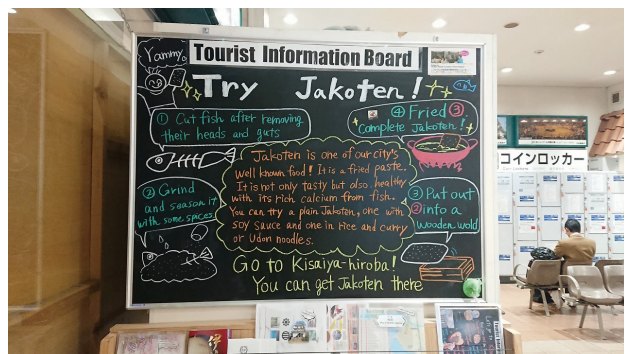 Yammy
Tourist Information Board
Try Jakoten!
① Cut fish after removing
their heads and guts
④ Fried ③
Complete Jakoten!
Jakoten is one of our city's
well known food! It is a fried paste.
It is not only tasty but also healthy
with its rich calcium from fish.
You can try a plain Jakoten, one with
soy sauce and one in rice and curry
or Udon noodles.
② Grind
and season it
with some spices
③ Put out
② into a
wooden wold
Go to Kisaiya-hiroba!
You can get Jakoten there
コインロッカー